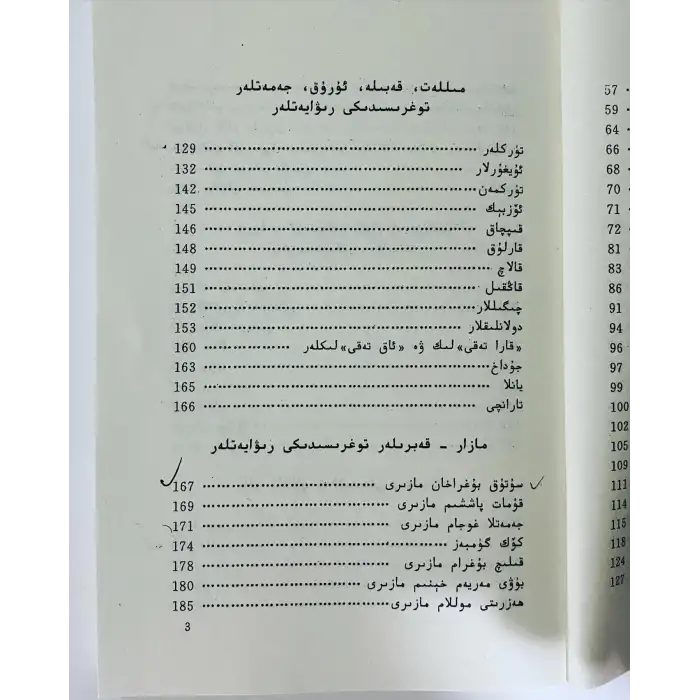 مىللەت، قەبىلە، ئۇرۇق، جەمەتلەر
توغرىسىدىكى رىۋايەتلەر
تۈركلەر 129
ئۇيغۇرلار 132
تۈركمەن 142
ئۆزبېك 145
قىپچاق 146
قارلۇق 148
قالاچ 149
قاڭقىل 151
چىگىللار 152
دولانلىقلار 153
«قارا تەقى»لىك ۋە «ئاق تەقى»لىكلەر 160
جۇداخ 163
يانلا 165
تارانچى 166
مازار - قەبرىلەر توغرىسىدىكى رىۋايەتلەر
سۇتۇق بۇغراخان مازىرى 167
قۇمات پاششىم مازىرى 169
جەمەتلا غوجام مازىرى 171
كۆك گۈمبەز 174
قىلىچ بۇغرام مازىرى 178
بۇۋى مەريەم خېنىم مازىرى 180
ھەزرىتى موللام مازىرى 185
3
57
59
64
66
68
70
71
72
81
83
86
91
94
96
97
99
100
102
105
109
111
114
115
118
124
127